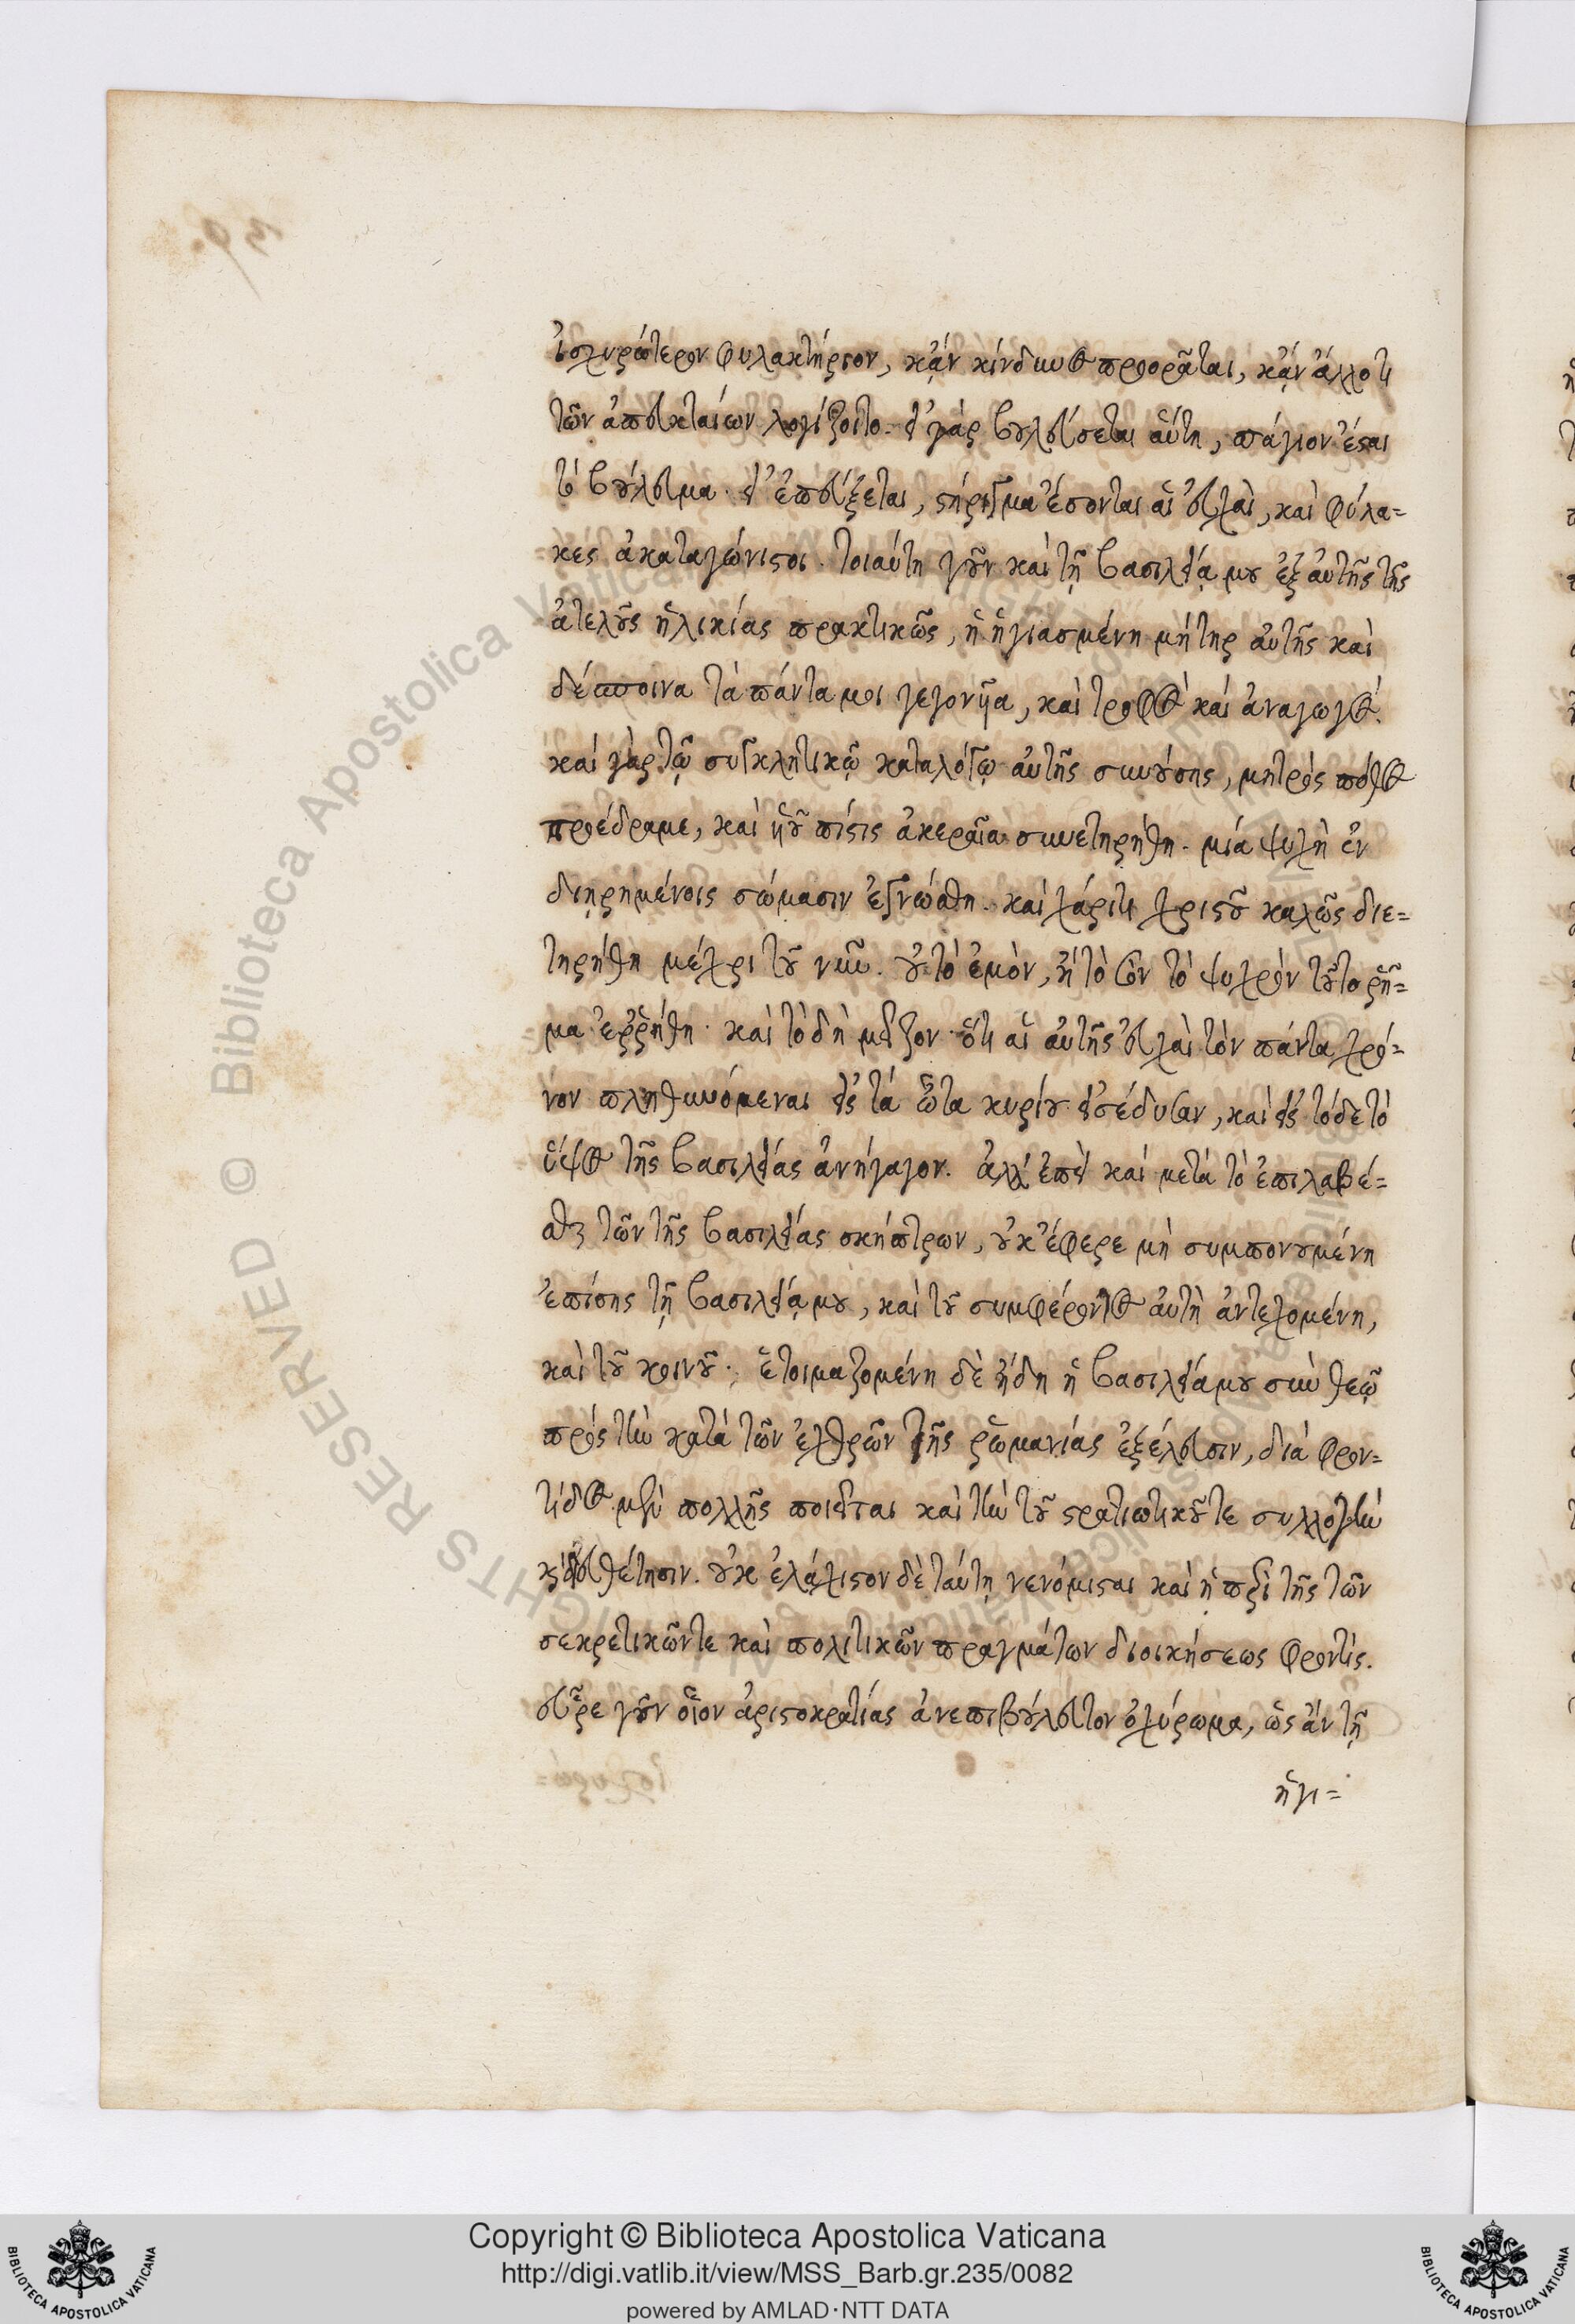 ἰσχυρότερον φυλακτήριον, κᾂν κίνδυνος προορᾶται, κᾂν ἄλλο τι
τῶν ἀπευκταίων λογίζοιτο. εἰ γὰρ βουλεύσεται αὕτη, πάγιον ἔσται
τὸ βούλευμα. εἰ ἐπεύξεται, στήριγμα ἔσονται αἱ εὐχαὶ, καὶ φύλα=
κες ἀκαταγώνιστοι. τοιαύτη γοῦν καὶ τῇ βασιλείᾳ μου ἐξ αὐτῆς τῆς
ἀτελοῦς ἡλικίας πρακτικῶς, ἡ ἡγιασμένη μήτηρ αὐτῆς καὶ
δέσποινα τὰ πάντα μοι γεγονυῖα, καὶ τροφὸς καὶ ἀναγωγός.
καὶ γὰρ τῷ συγκλητικῷ καταλόγῳ αὐτῆς συνούσης, μητρὸς πόθος
προέδραμε, καὶ υἱοῦ πίστις ἀκεραία συνετηρήθη. μία ψυχὴ ἐν
διῃρημένοις σώμασιν ἐγνώσθη. καὶ χάριτι χριστοῦ καλῶς διε=
τηρήθη μέχρι τοῦ νῦν. οὐ τὸ ἐμὸν, ἢ τὸ σὸν τὸ ψυχρὸν τοῦτο ῥῆ=
μα ἐῤῥήθη. καὶ τὸ δὴ μεῖζον ὅτι αἱ αὐτῆς εὐχαὶ τὸν πάντα χρό=
νον πληθυνόμεναι εἰς τὰ ὦτα κυρίου εἰσέδυσαν, καὶ εἰς τόδε τὸ
ὕψος τῆς βασιλείας ἀνήγαγον. ἀλλ' ἐπεὶ καὶ μετὰ τὸ ἐπιλαβέ=
σθαι τῶν τῆς βασιλείας σκήπτρων, οὐκ ἔφερε μὴ συμπονουμένη
ἐπίσης τῇ βασιλείᾳ μου, καὶ τοῦ συμφέροντος αὐτὴ ἀντεχομένη,
καὶ τοῦ κοινοῦ. ἑτοιμαζομένη δὲ ἤδη ἡ βασιλεία μου σὺν θεῷ
πρὸς τὴν κατὰ τῶν ἐχθρῶν τῆς ῥωμανίας ἐξέλευσιν, διὰ φρον=
τίδος μὲν πολλῆς ποιεῖται καὶ τὴν τοῦ στρατιωτικοῦ τε συλλογὴν
καὶ εὐθέτησιν. οὐκ ἐλάχιστον δὲ ταύτῃ νενόμισται καὶ ἡ περὶ τῆς τῶν
σεκρετικῶν τε καὶ πολιτικῶν πραγμάτων διοικήσεως φροντίς.
εὗρε γοῦν οἷον ἀριστοκρατίας ἀνεπιβούλευτον ὀχύρωμα, ὡς ἂν τῇ
ἡγι=
Copyright © Biblioteca Apostolica Vaticana
http://digi.vatlib.it/view/MSS_Barb.gr.235/0082
powered by AMLAD·NTT DATA
BIBLIOTECA APOSTOLICA VATICANA
BIBLIOTECA APOSTOLICA VATICANA